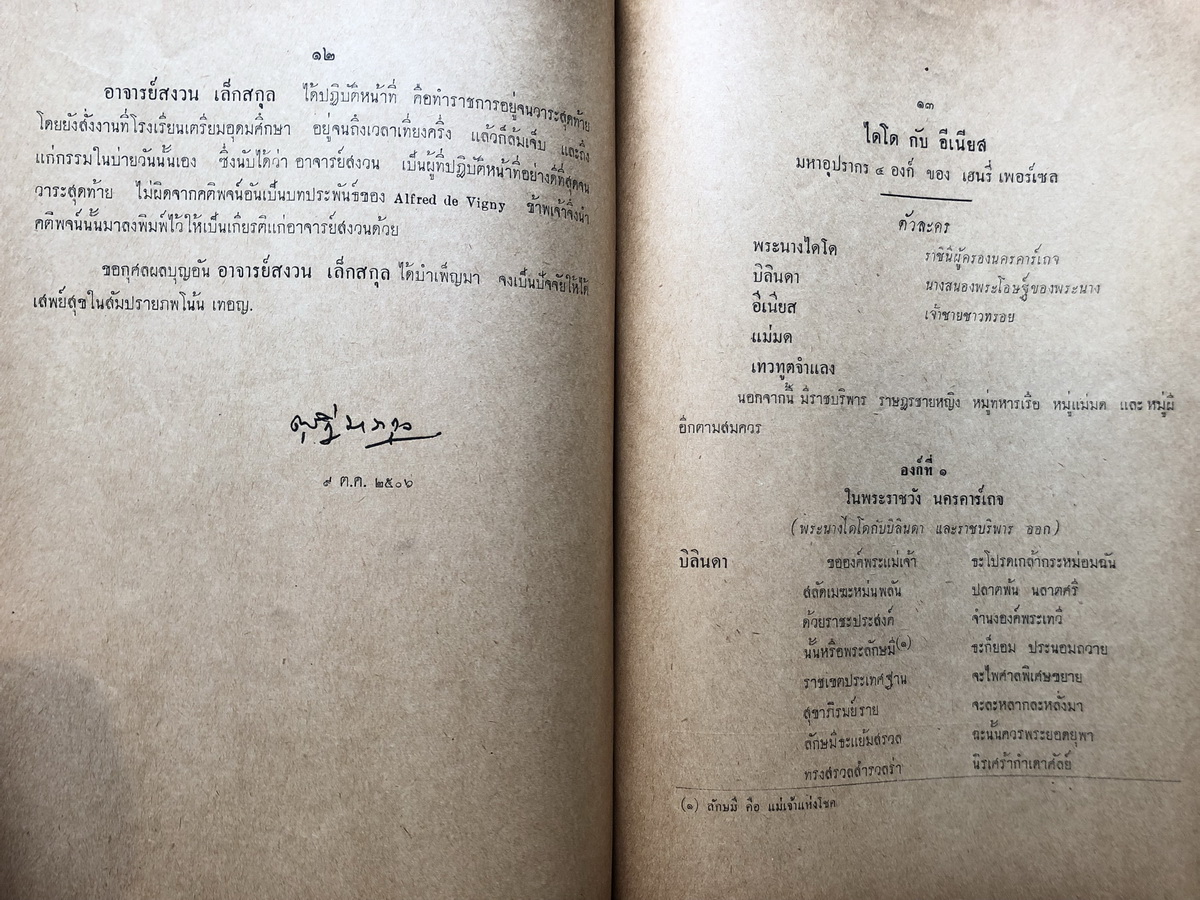 ๑๒
อาจารย์สงวน เล็กสกุล ได้ปฏิบัติหน้าที่ คือทำราชการอยู่จนวาระสุดท้าย
โดยยังสั่งงานที่โรงเรียนเตรียมอุดมศึกษา อยู่จนถึงเวลาเที่ยงครึ่ง แล้วก็ล้มเจ็บ และถึง
แก่กรรมในบ่ายวันนั้นเอง ซึ่งนับได้ว่า อาจารย์สงวน เป็นผู้ที่ปฏิบัติหน้าที่อย่างดีที่สุดจน
วาระสุดท้าย ไม่ผิดจากคติพจน์อันเป็นบทประพันธ์ของ Alfred de Vigny ข้าพเจ้าจึงนำ
คติพจน์นั้นมาลงพิมพ์ไว้ให้เป็นเกียรติแก่อาจารย์สงวนด้วย
ขอกุศลผลบุญอัน อาจารย์สงวน เล็กสกุล ได้บำเพ็ญมา จงเป็นปัจจัยให้ได้
เสพย์สุขในสัมปรายภพโน้น เทอญ.
๙ ต.ค. ๒๕๐๖
๑๓
ไดโด กับ อีเนียส
มหาอุปรากร ๔ องก์ ของ เฮนรี่ เพอร์เซล
ตัวละคร
พระนางไดโด ราชินีผู้ครองนครคาร์เถจ
บิลินดา นางสนองพระโอษฐ์ของพระนาง
อีเนียส เจ้าชายชาวทรอย
แม่มด
เทวทูตจำแลง
นอกจากนี้ มีราชบริพาร ราษฎรชายหญิง หมู่ทหารเรือ หมู่แม่มด และ หมู่ผี
อีกตามสมควร
องก์ที่ ๑
ในพระราชวัง นครคาร์เถจ
(พระนางไดโดกับบิลินดา และราชบริพาร ออก)
บิลินดา ขอองค์พระแม่เจ้า ชะโปรดเกล้ากระหม่อมฉัน
สลัดเมฆะหม่นพลัน ปลาตพ้น นลาตศรี
ด้วยราชะประสงค์ จำนงองค์พระเทวี
นั้นหรือพระลักษมี(๑) ชะก็ยอม ประนอมถวาย
ราชเขตประเทศฐาน จะไพศาลพิเศษขยาย
สุขาภิรมย์ราย จะละหลากละหลั่งมา
ลักษมีชะแย้มสรวล ฉะนั้นควรพระยอดยุพา
ทรงสรวลสำรวลร่า นิรเศร้ากำเดาศัลย์
(๑) ลักษมี คือ แม่เจ้าแห่งโชค